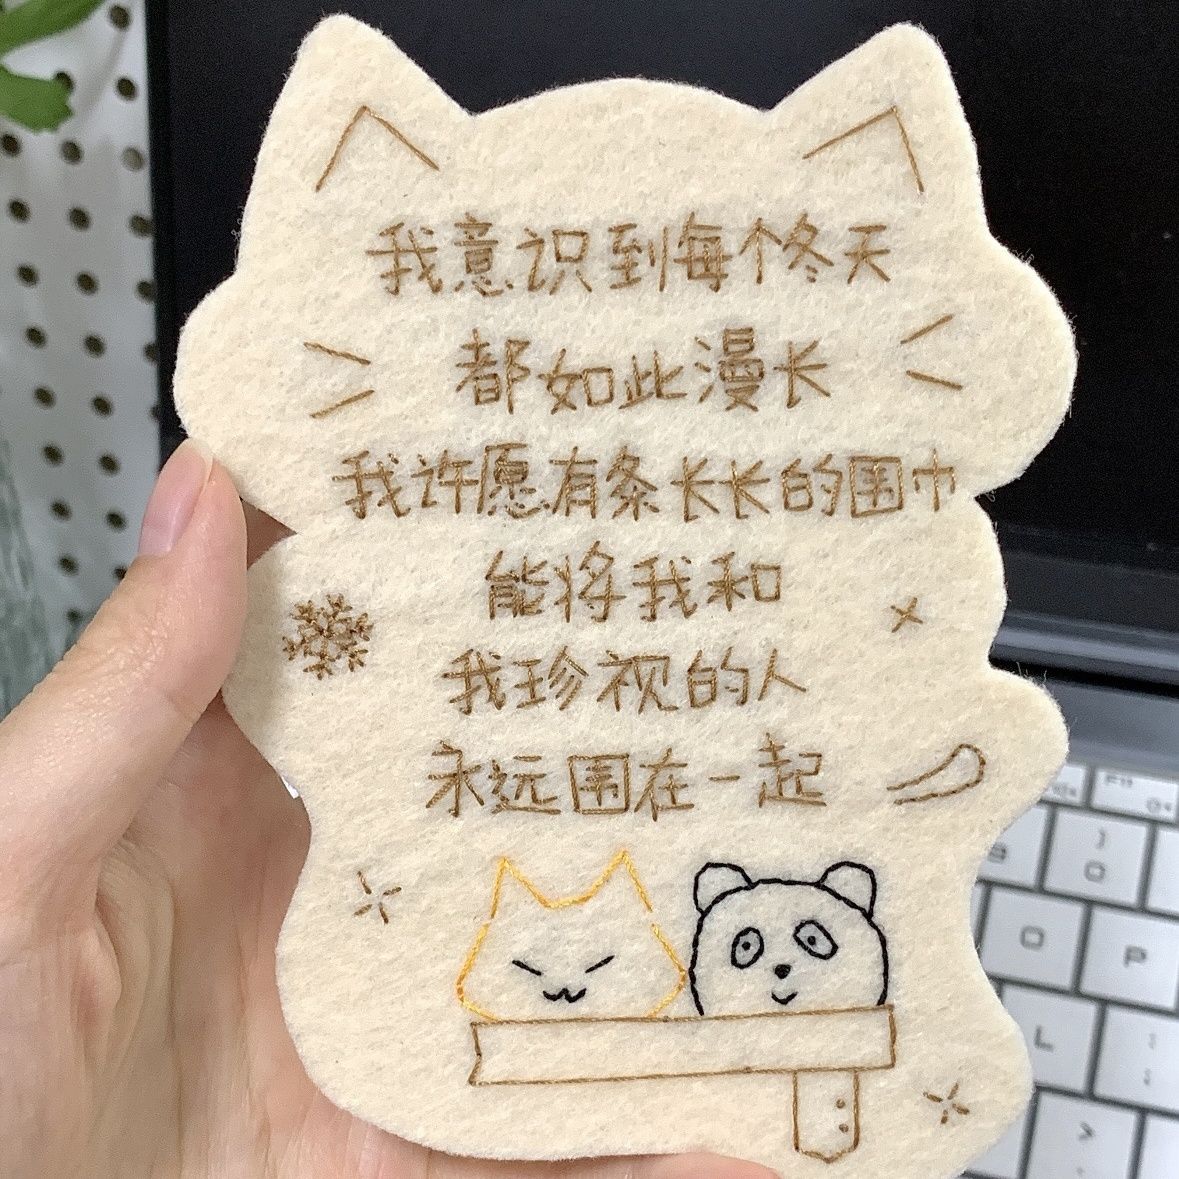 我意识到每个冬天
都如此漫长
我许愿有条长长的围巾
能将我和
我珍视的人
永远围在一起
9
0
O
P
L